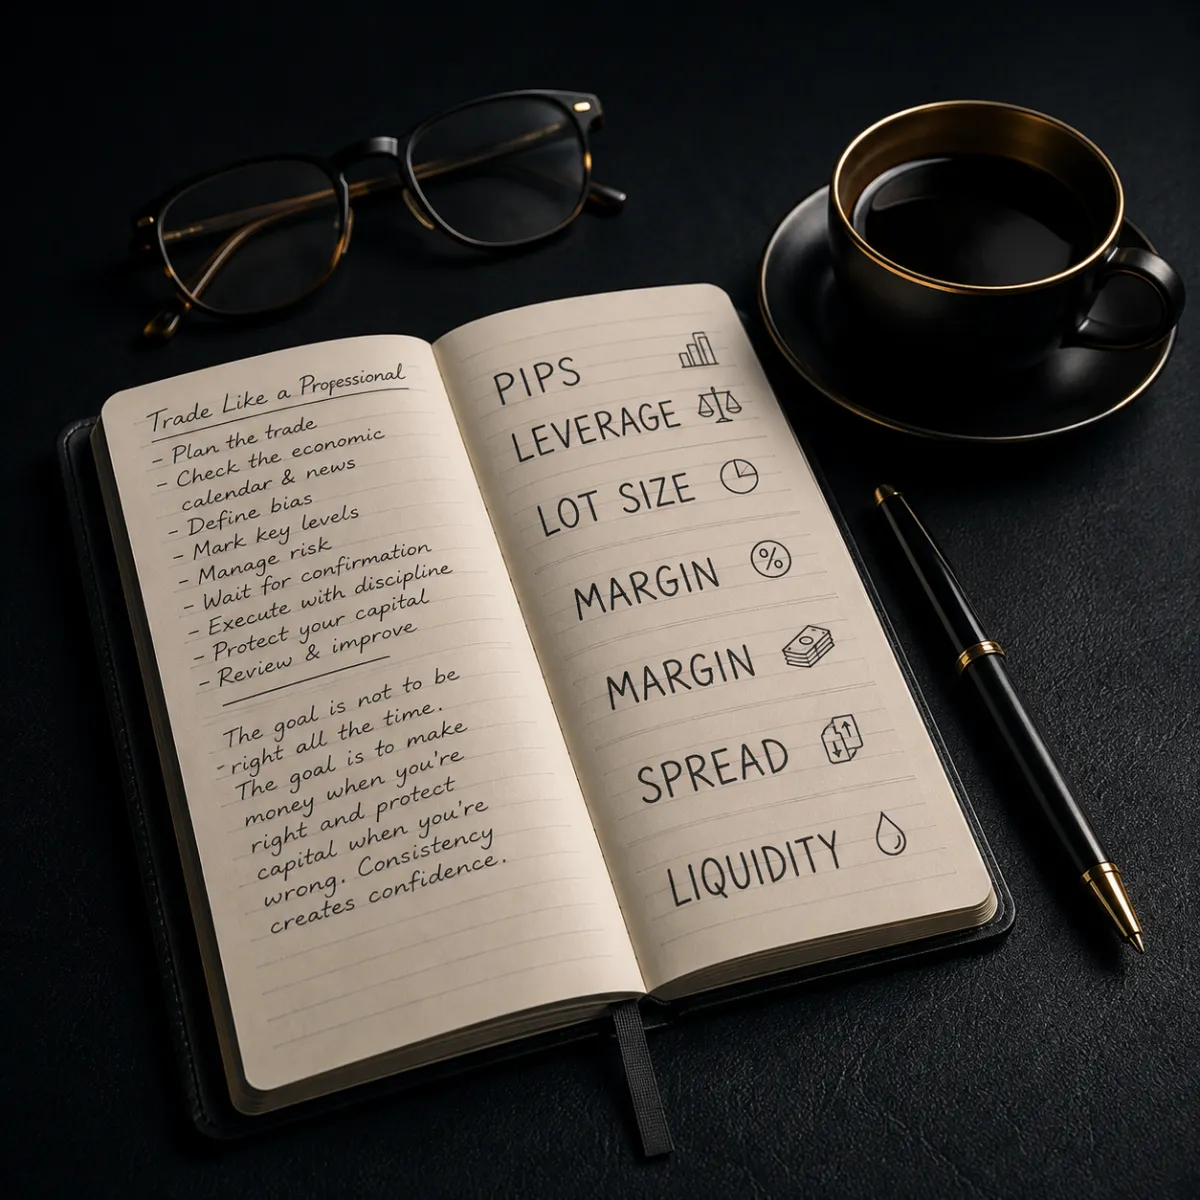 Trade Like a Propessional
- Plan the trade
- Check the economic
calendar & news
- Define bias
- Mark key levels
- Manage risk
- Wait for confirmation
- Execute with discipline
- Protect your capital
- Review & improve
The goal is not to be
- right all the time.
The goal is to make
money when you're
right and protect
capital when you're
wrong. Consistency
creates confidence.
PIPS
LEVERAGE
LOT SIZE
MARGIN %
MARGIN
SPREAD
LIQUIDITY